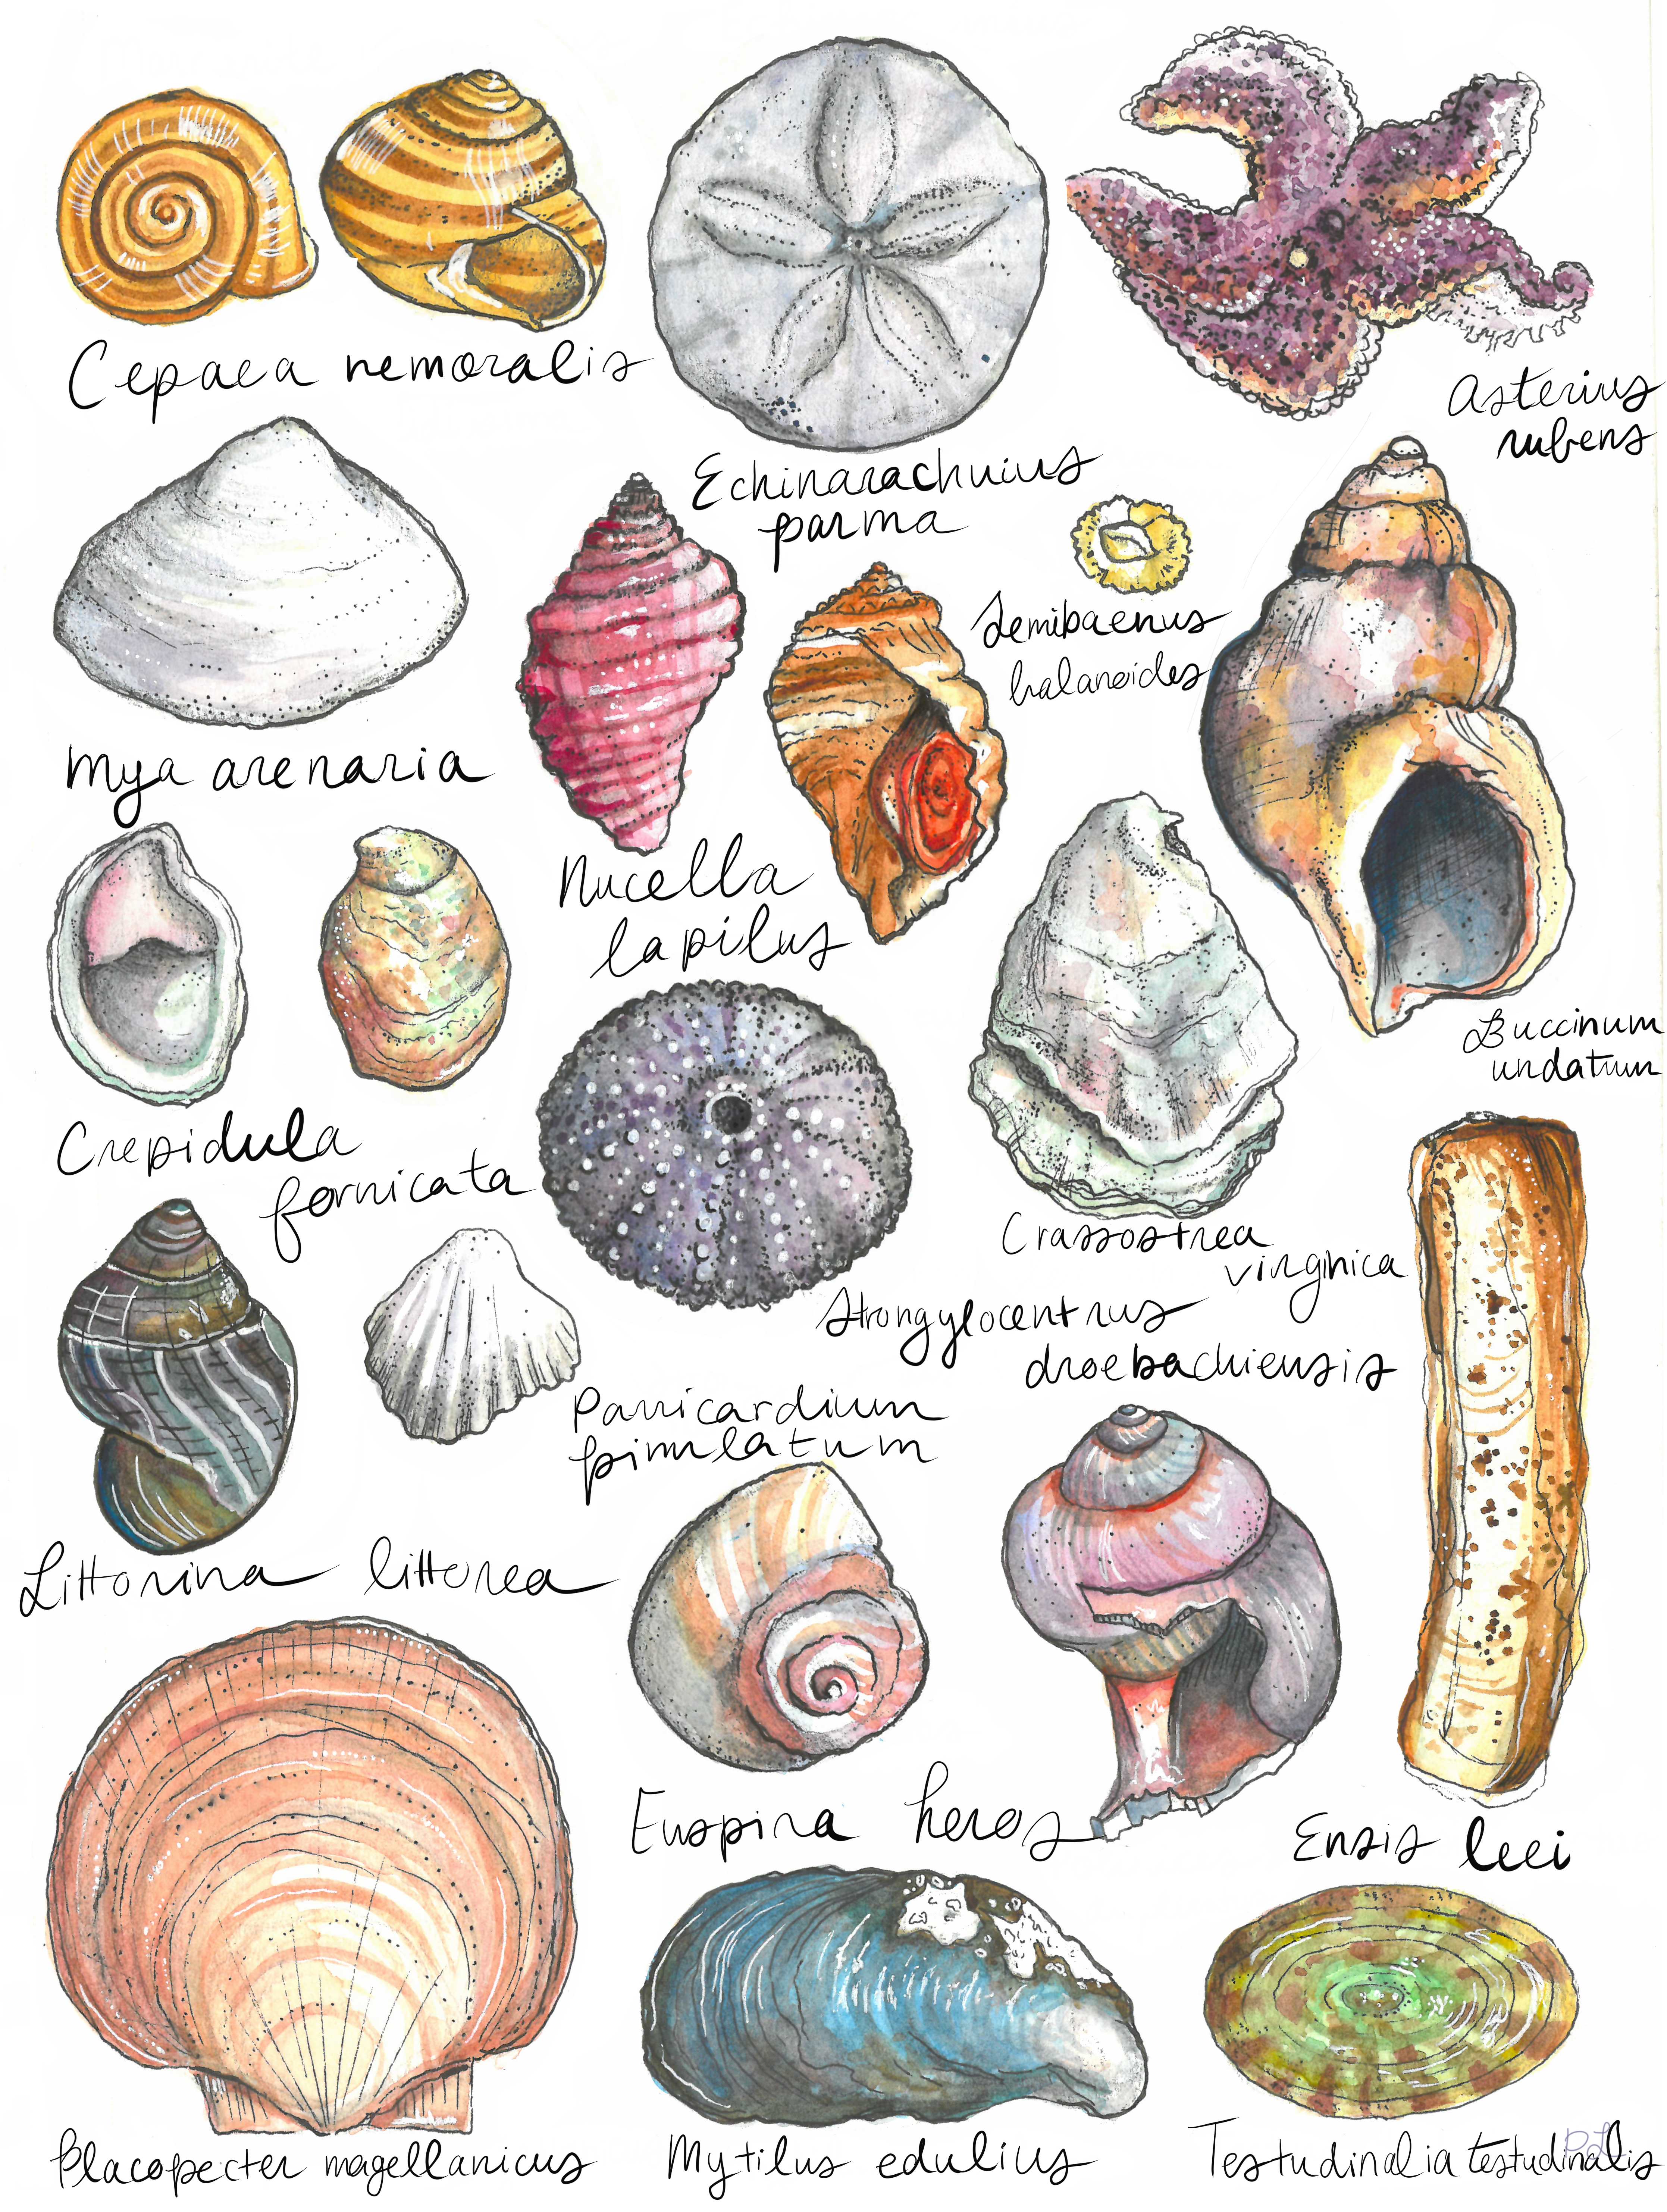 Cepaea nemoralis
Asterius
rubens
Echinarachuius
parma
Semibaenus
balanoides
Mya arenaria
Nucella
lapilus
Buccinum
undatum
Crepidula
fornicata
Crassostrea
virginica
Strongylocentrus
droebachiensis
Parvicardium
pinnlatum
Littorina littorea
Euspira heros
Ensis leei
Placopecten magellanicus
Mytilus edulius
Testudinalia testudinalis